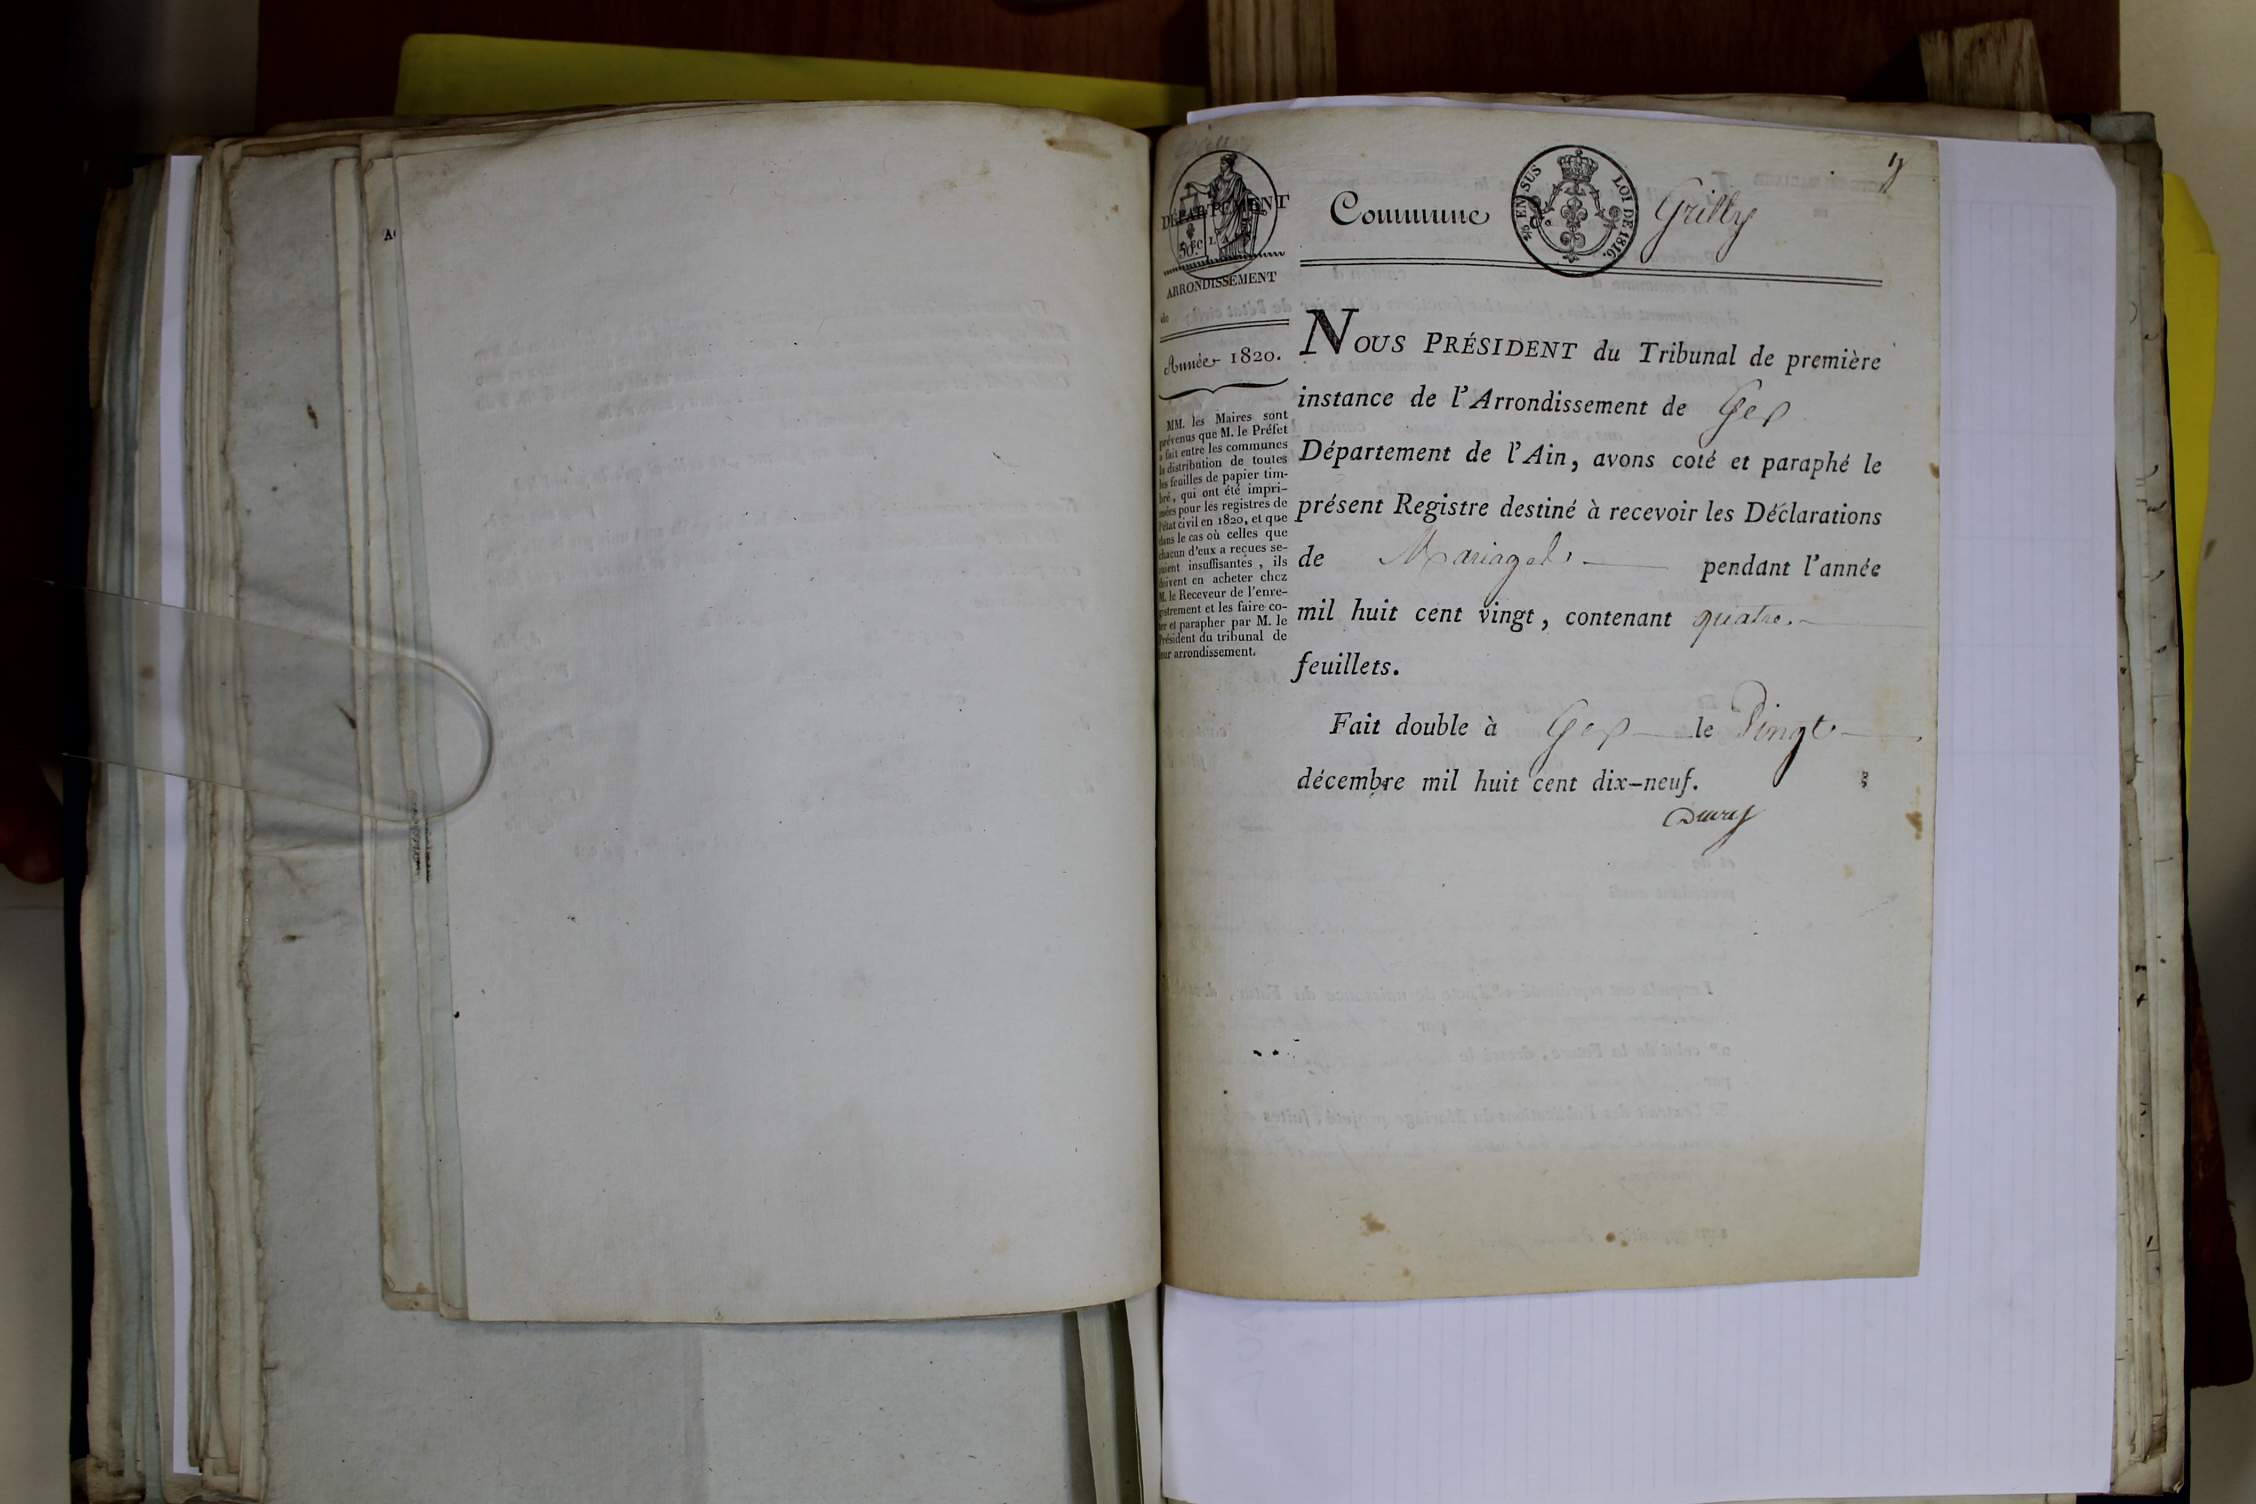 DÉPARTEMENT
DE L'AIN.
50.c
ARRONDISSEMENT
de
Année 1820.
MM. les Maires sont
prévenus que M. le Préfet
a fait entre les communes
la distribution de toutes
les feuilles de papier tim-
bré, qui ont été impri-
mées pour les registres de
l'état civil en 1820, et que
dans le cas où celles que
chacun d'eux a reçues se-
raient insuffisantes, ils
doivent en acheter chez
M. le Receveur de l'enre-
gistrement et les faire co-
ter et parapher par M. le
Président du tribunal de
leur arrondissement.
Commune de Grilly
EN SUS LOI DE 1816.
NOUS PRÉSIDENT du Tribunal de première
instance de l'Arrondissement de Gex
Département de l'Ain, avons coté et paraphé le
présent Registre destiné à recevoir les Déclarations
de Mariages pendant l'année
mil huit cent vingt, contenant quatre
feuillets.
Fait double à Gex le Vingt
décembre mil huit cent dix-neuf.